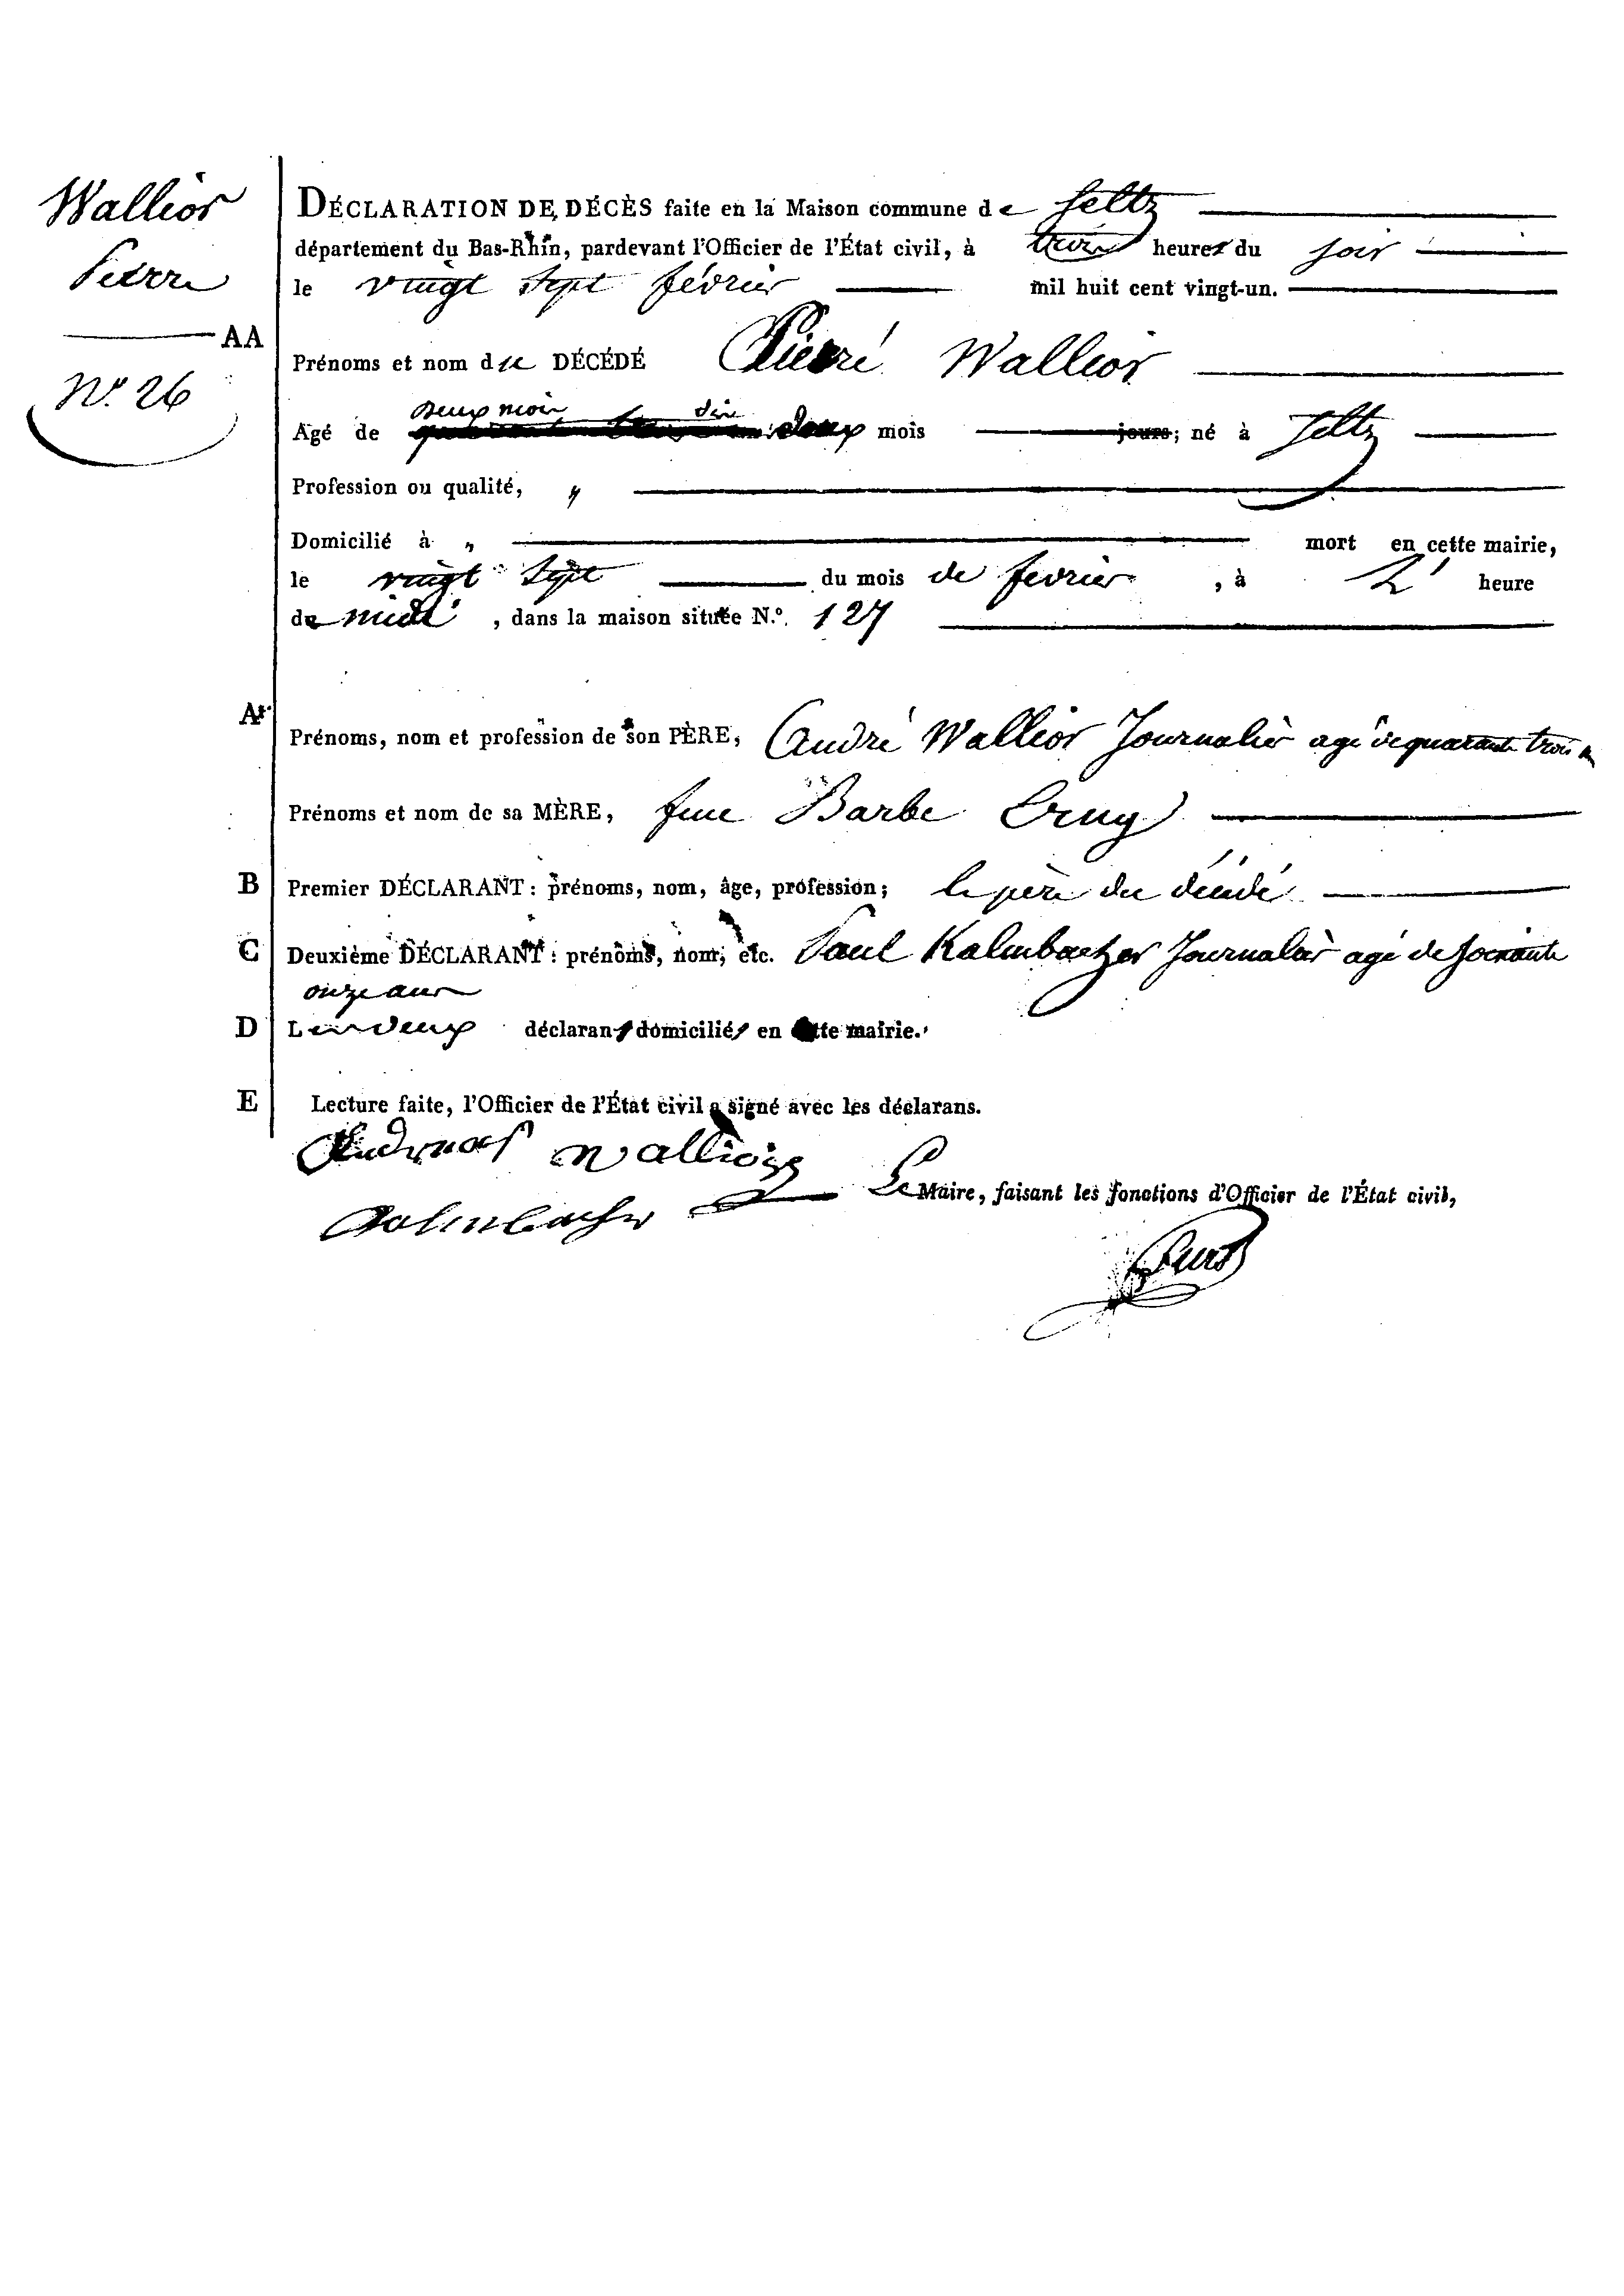 Wallior
Pierre
AA
N.º 26
DÉCLARATION DE DÉCÈS faite en la Maison commune de Seltz
département du Bas-Rhin, pardevant l'Officier de l'État civil, à trois heures du soir
le vingt sept février mil huit cent vingt-un.
Prénoms et nom du DÉCÉDÉ Pierre Wallior
deux mois dix
Agé de deux mois jours; né à Seltz
Profession ou qualité, "
Domicilié à " mort en cette mairie,
le vingt sept du mois de fevrier, à 2 heure
de midi, dans la maison située N.º 127
A
Prénoms, nom et profession de son PÈRE, André Wallior Journalier agé de quarante trois
Prénoms et nom de sa MÈRE, feue Barbe
B Premier DÉCLARANT: prénoms, nom, âge, profession; le père du décédé
C Deuxième DÉCLARANT: prénoms, nom, etc. Paul Kalmbacher Journalier agé de soixante
onze ans
D Les deux déclarans domiciliés en cette mairie.
E Lecture faite, l'Officier de l'État civil a signé avec les déclarans.
Andreas Wallior
Kalmbacher
Le Maire, faisant les fonctions d'Officier de l'État civil,